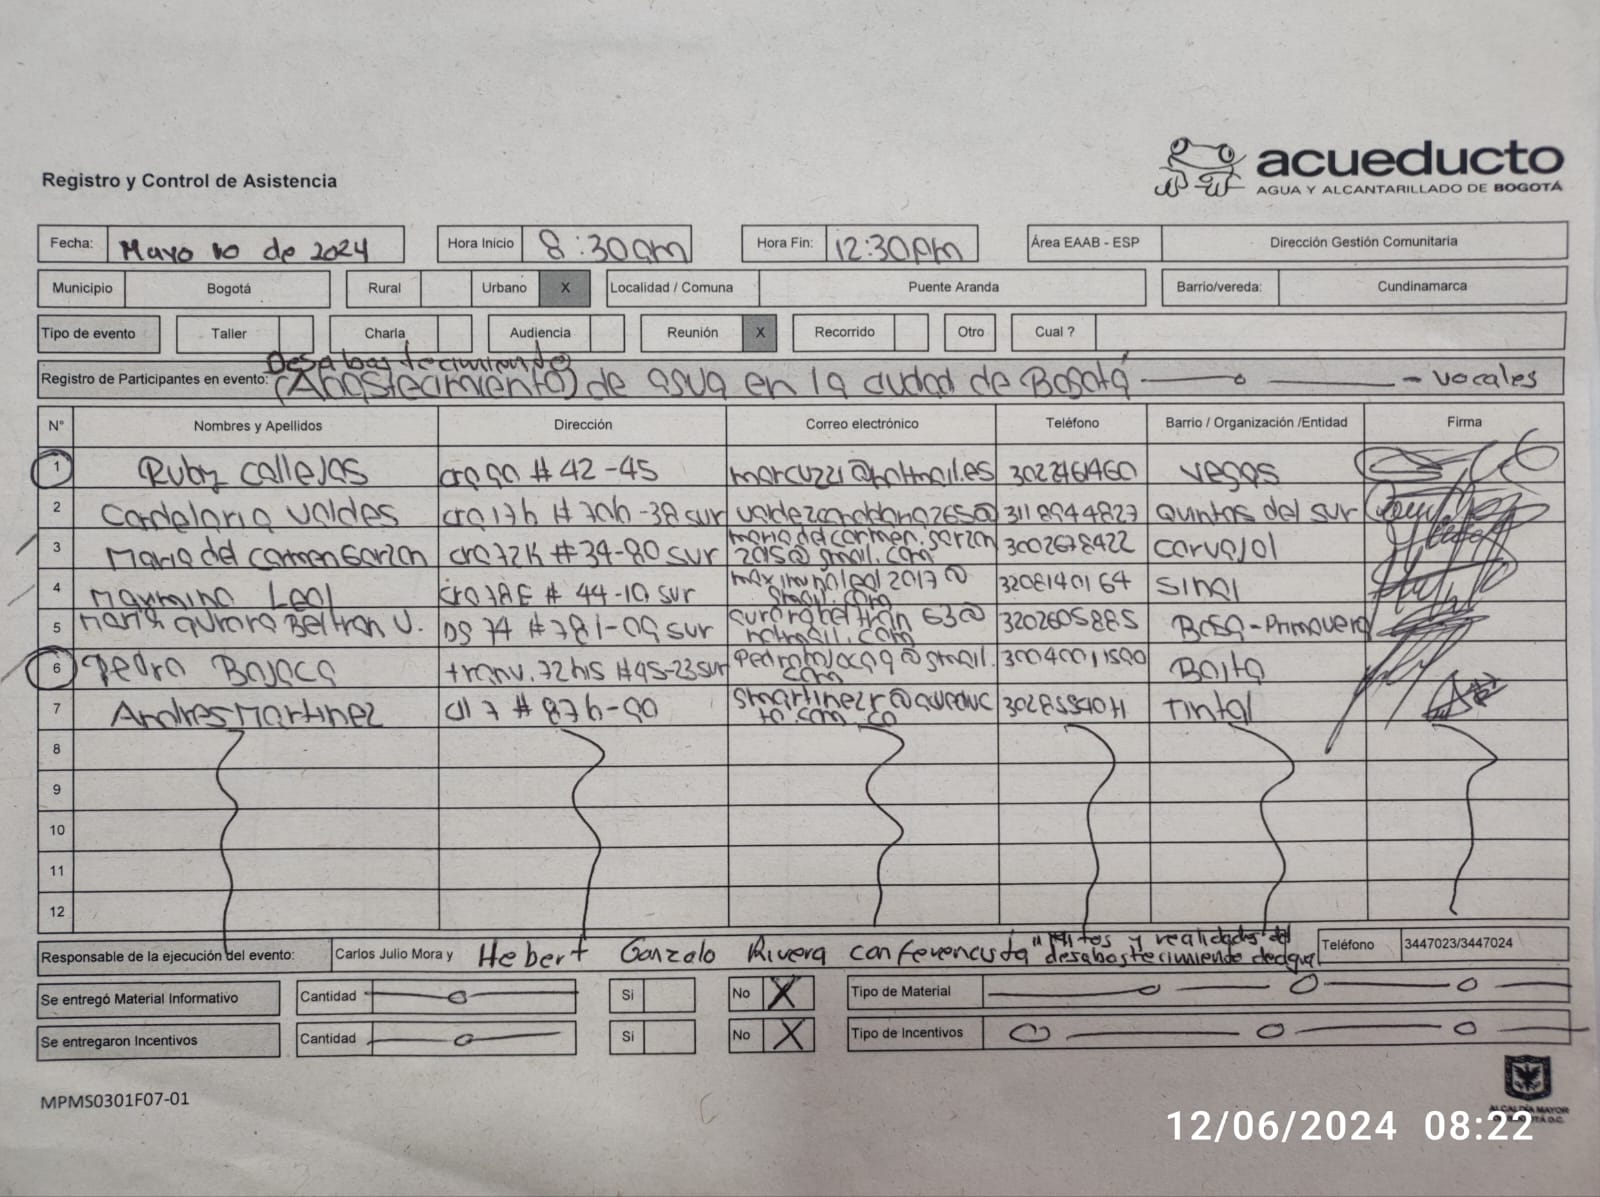 acueducto
AGUA Y ALCANTARILLADO DE BOGOTÁ
Registro y Control de Asistencia
Fecha: Mayo 10 de 2024 Hora Inicio 8:30am Hora Fin: 12:30pm Área EAAB - ESP Dirección Gestión Comunitaria
Municipio Bogotá Rural Urbano X Localidad / Comuna Puente Aranda Barrio/vereda: Cundinamarca
Tipo de evento Taller Charla Audiencia Reunión X Recorrido Otro Cual ?
Desabastecimiento
Registro de Participantes en evento: (Abastecimiento) de agua en la ciudad de Bogotá - vocales
N° Nombres y Apellidos Dirección Correo electrónico Teléfono Barrio / Organización /Entidad Firma
1 Ruby Callejas cra 9a # 42-45 marcuzzi@hotmail.es 3022461460 Vegas
2 Candelaria Valdes cra 17b # 70b-38 sur 3118944827 Quintas del sur
3 Maria del Carmen Garzon cra 72K # 34-80 sur maria del carmen.garzon
2015@gmail.com 3002678422 Carvajal
4 Maximino Leal cra 78E # 44-10 sur maximinoleal2017@
gmail.com 3208140164 Sinai
5 Maria Aurora Beltran V. DG 74 # 78I-09 sur aurorabeltran63@
hotmail.com 3202605885 Bosa-Primavera
6 Pedro Bajaca tranv. 72 bis #45-23 sur @gmail.
com Boita
7 Andres Martinez cll 7 # 87b-90 smartinezr@acueduc
to.com.co Tintal
8
9
10
11
12
Responsable de la ejecución del evento: Carlos Julio Mora y Hebert Gonzalo Rivera conferencista "mitos y realidades del
desabastecimiento de agua Teléfono 3447023/3447024
Se entregó Material Informativo Cantidad Si No X Tipo de Material
Se entregaron Incentivos Cantidad Si No X Tipo de Incentivos
MPMS0301F07-01
ALCALDÍA MAYOR
DE BOGOTÁ D.C.
12/06/2024 08:22